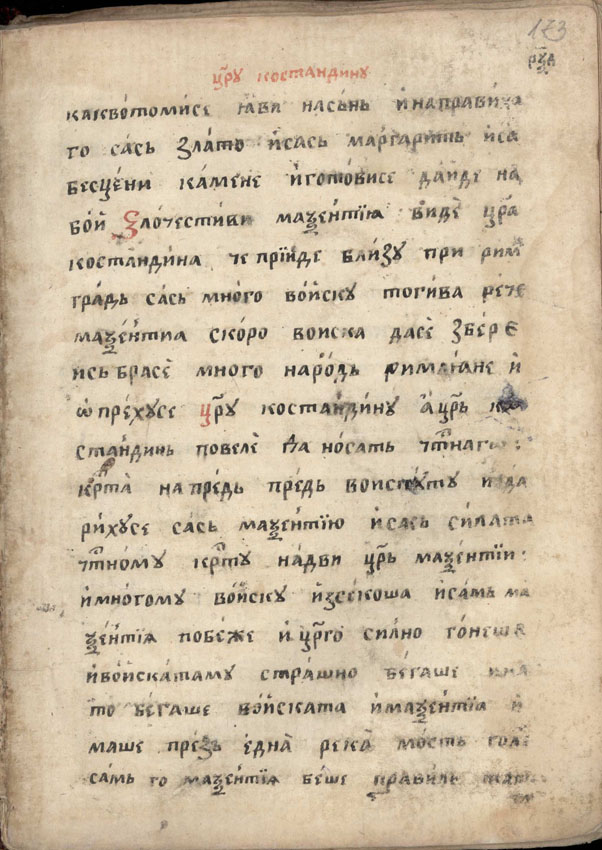 173
рꙋ҃д
цр҃ꙋ костандинꙋ
каквотомꙋсе ꙗви насьнь и направи
го сась злато исась маргарить иса
бесцени камене иготовисе дайде на
бой злочестиви маѯентїа виде цр҃а
костандина че прїиде близꙋ при рим
градь сась много войскꙋ тогива рече
маѯентиа скоро воиска дасе збере
исьбрасе много народь римлꙗне и
ѿпрехꙋсе цр҃ꙋ костандинꙋ а цр҃ь ко
стандинь повеле да носать чтⷭ҇наго
крⷭ҇та напредь предь воискꙋтꙋ иꙋда
рихꙋсе сась маѯентїю исась силата
чтⷭ҇номꙋ крⷭ҇тꙋ надви цр҃ь маѯентїи
имногомꙋ войскꙋ изсекоша исамь ма
ѯентїа побеже и цр҃го силно гонеше
ивойскатамꙋ страшно бегаше
то бегаше войската имаѯентїа и
маше презь една река мость голе
самь го маѯентїа беше правиль